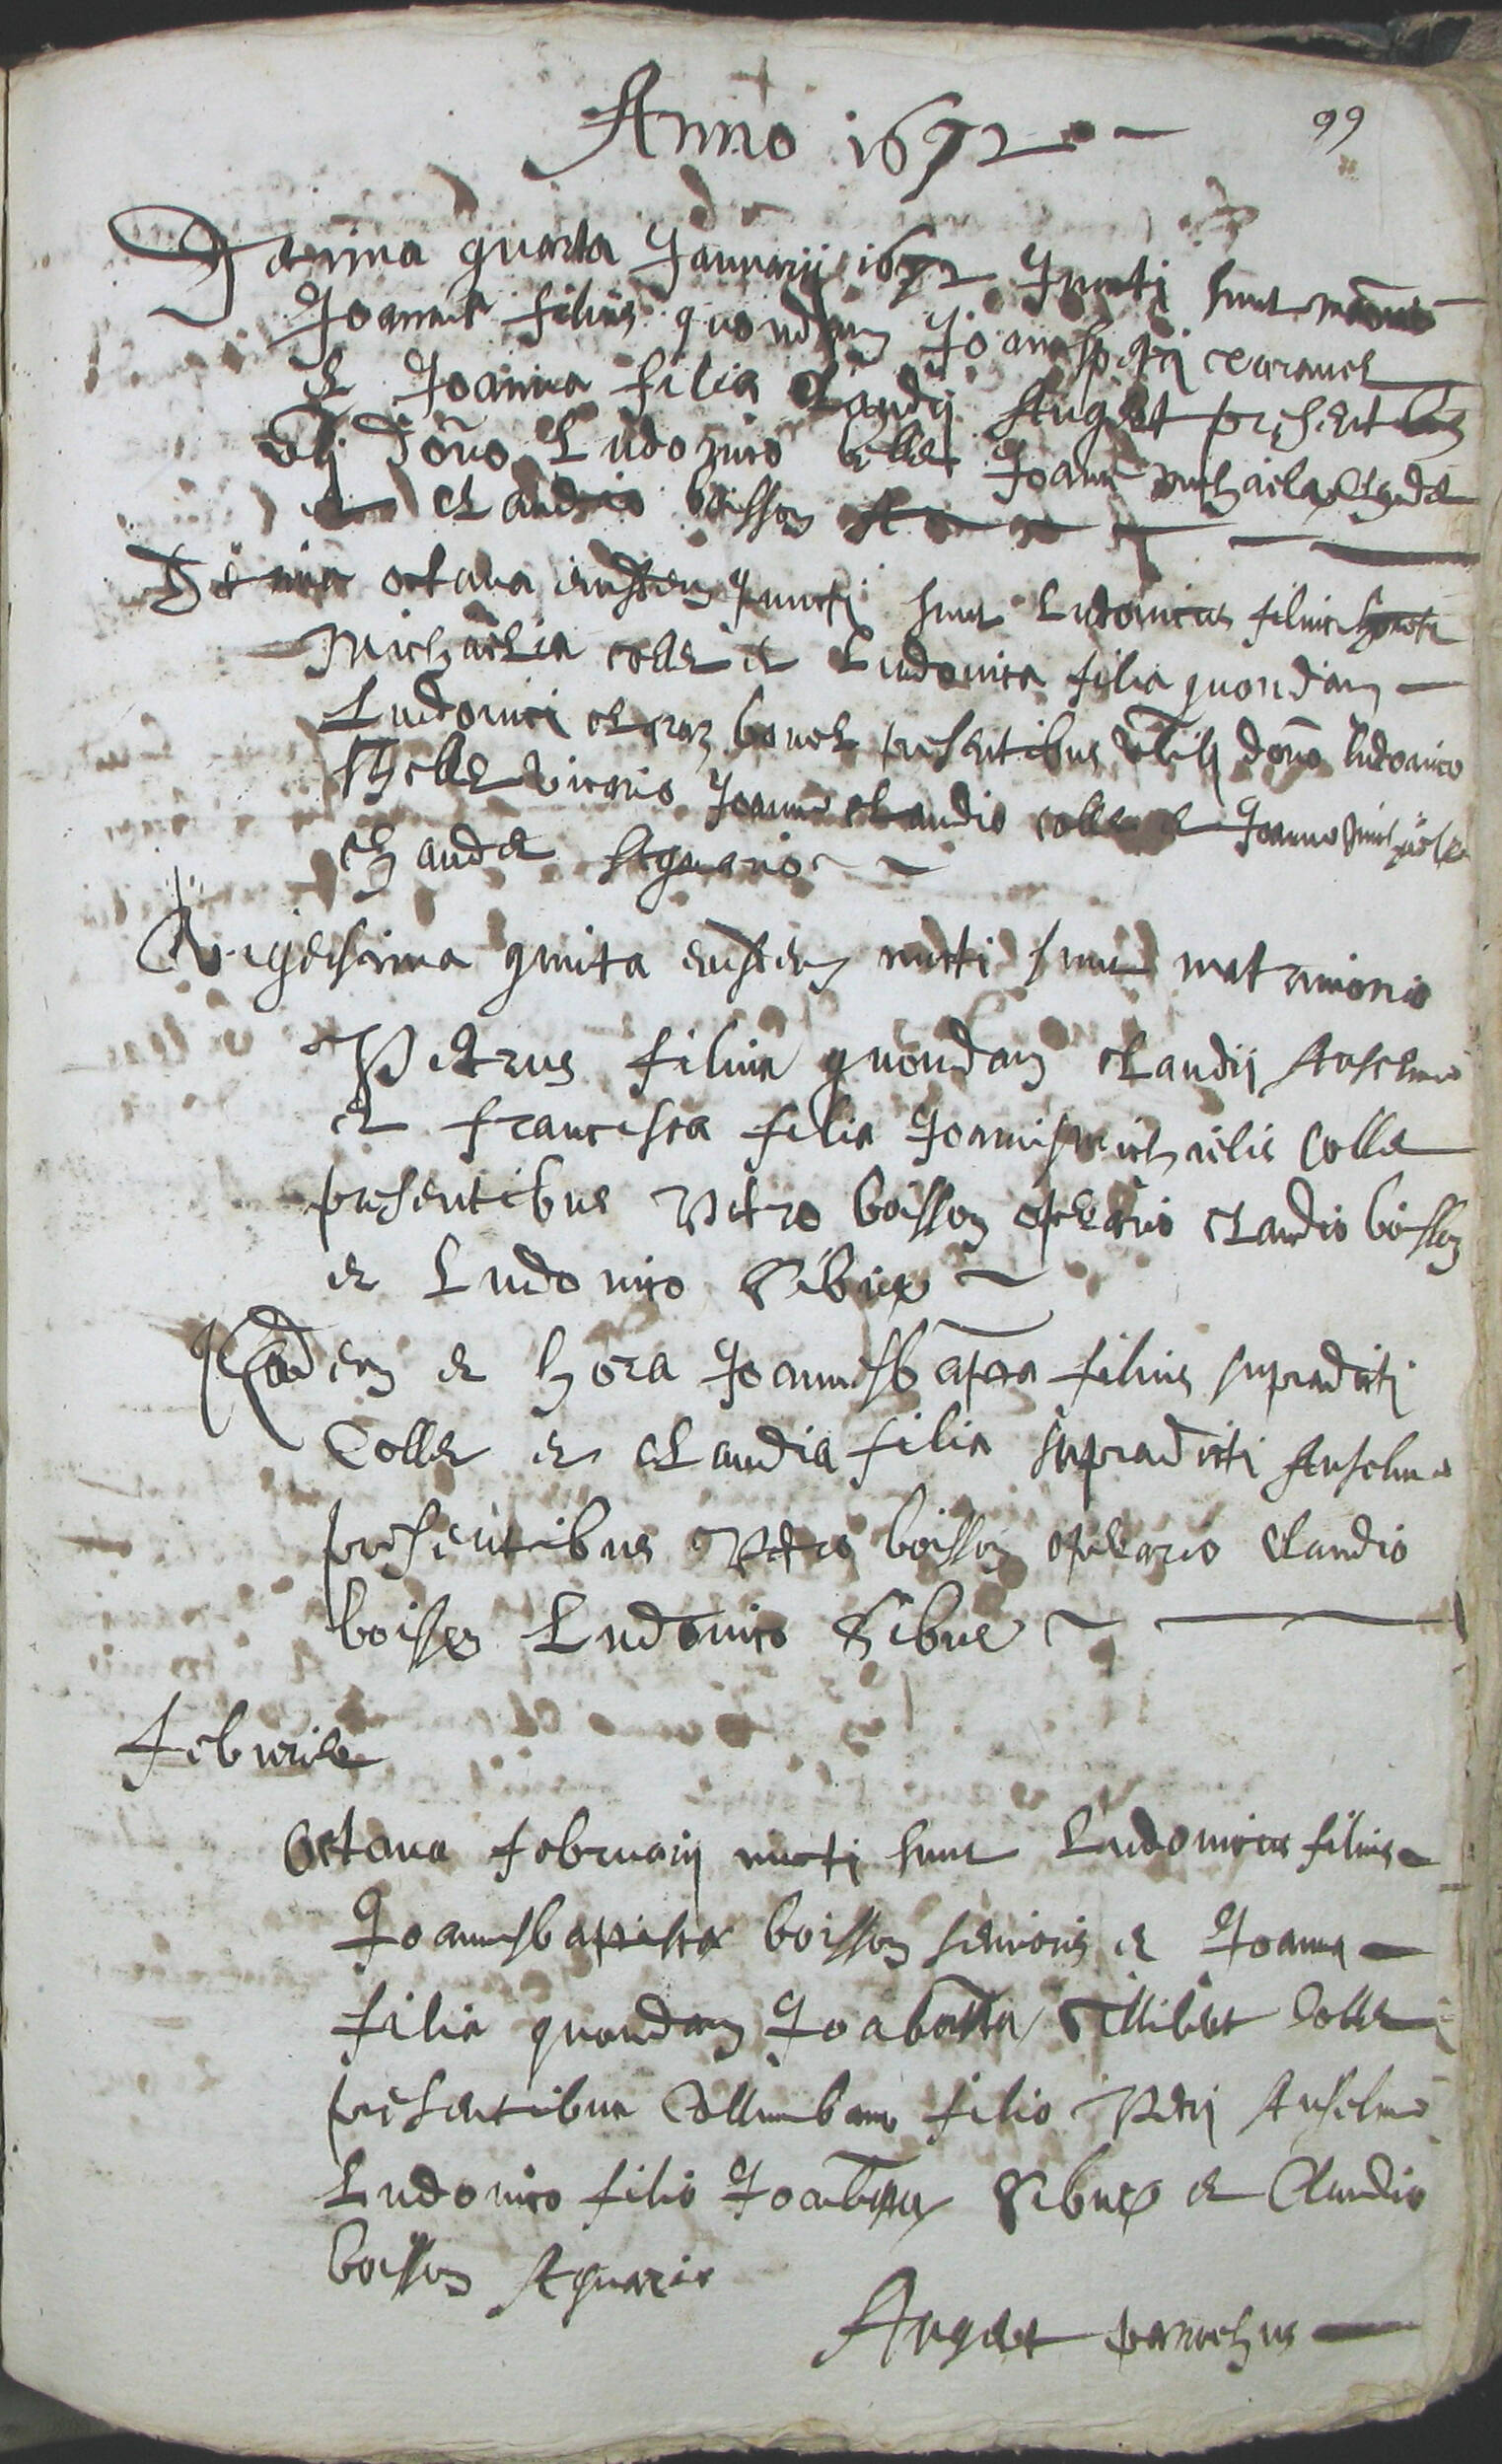 Anno 1672
99
Decima quarta Januarij 1672 Juncti sunt
Joannes filius quondam Joannispetri
et Joanna filia Claudij Auget presentibus
Dōno Ludovico Colle Joanne michaele
et Claudio boisson
Decima octava eiusdem Juncti sunt Ludovicus filius
Michaelis colle et Ludovica filia quondam
Ludovici presentibus dōno ludovico
vicario Joanne claudio colle et Joanne michaele
Aquario
Vigesima quinta eiusdem iuncti sunt matrimonio
Petrus filius quondam claudij Anselme
et francisca filia Joannismichaelis Colle
presentibus Petro boisson claudio boisson
et Ludovico Sibue
Eadem et hora Joannesbapta filius supradicti
Colle et claudia filia supradicti Anselme
presentibus Petro boisson claudio
boisson Ludovico Sibue
Octava februarij iuncti sunt Ludovicus filius
Joannisbaptistæ boisson senioris et Joanna
filia quondam Colle
presentibus Collumbano filio Petri Anselme
Ludovico filio Sibue et Claudio
boisson Aquario
Auget parochus